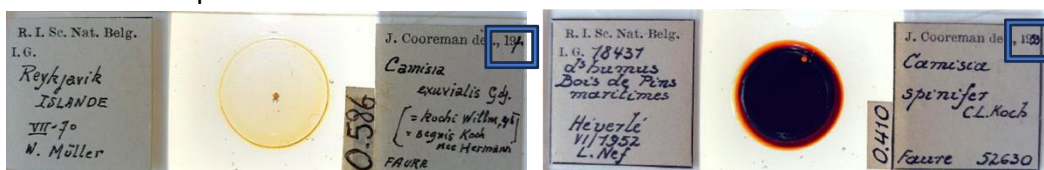 R. I. Sc. Nat. Belg.
I.G.
Reykjavik
ISLANDE
VII-70
N. Müller
0.586
J. Cooreman dét., 197
Camisia
exuvialis Gdj.
[= Kochi Willm,
= segnis Koch
nec Hermann
FAURE
R. I. Sc. Nat. Belg.
I. G. 18437
ds humus
Bois de Pins
maritimes
Héverlé
VI/1952
L. Nef
0.410
J. Cooreman de , 195
Camisia
spinifer
C.L.Koch
Faure 52630